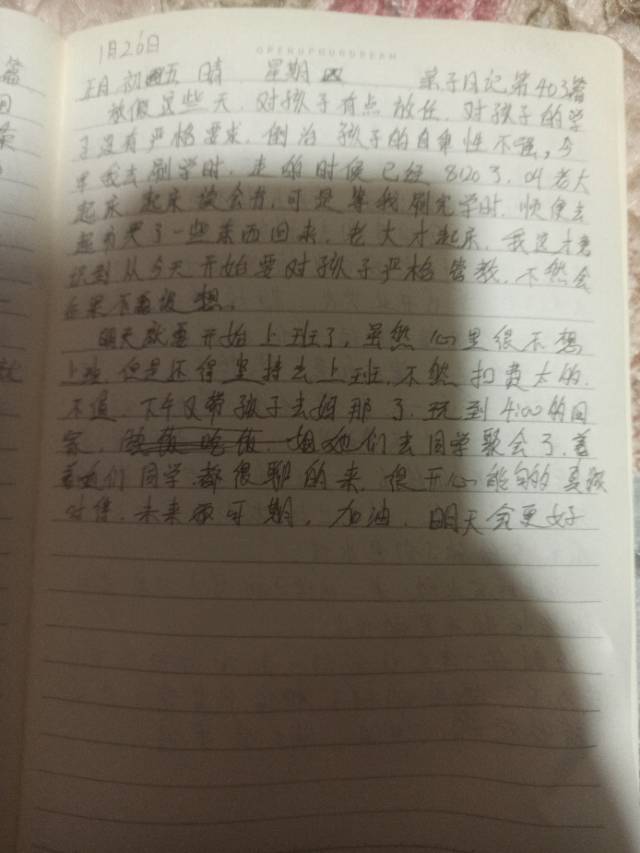 1月26日
OPENUPOURDREAM
正月初五 晴 星期四 亲子日记第403篇
放假这些天,对孩子有点放任,对孩子的学
习没有严格要求,倒治孩子的自律性不强,今
早我去刷学时,走的时候已经8:20了,叫老大
起床起床读会书,可是等我刷完学时,顺便去
超市买了一些东西回来,老大才起床,我这才意
识到从今天开始要对孩子严格管教,不然会
后果不堪设想。
明天就要开始上班了,虽然心里很不想
上班,但是还得坚持去上班,不然扣费太的,
不值,下午又带孩子去姐那了,玩到4:00的回
家,姐她们去同学聚会了,看
着她们同学都很聊的来,很开心能的真孩
对待,未来可期,加油,明天会更好